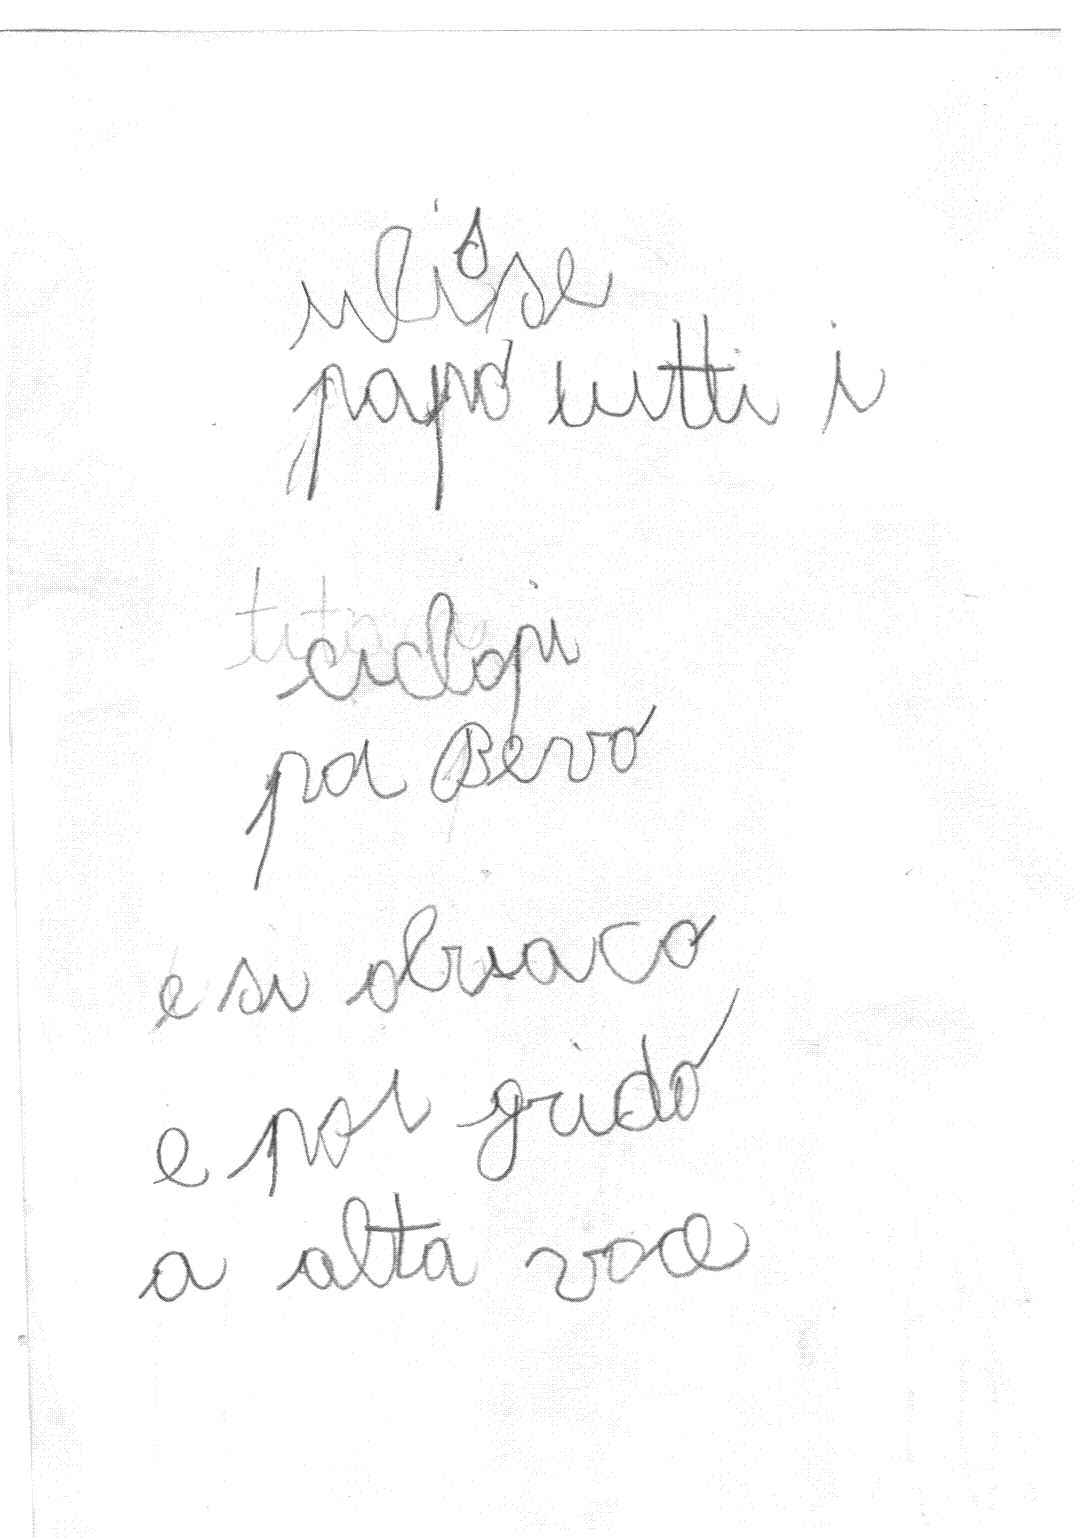 ulisse
papò tutti i
ciclopi
pa Bevo
e si obriaco
e poi gridò
a alta voce